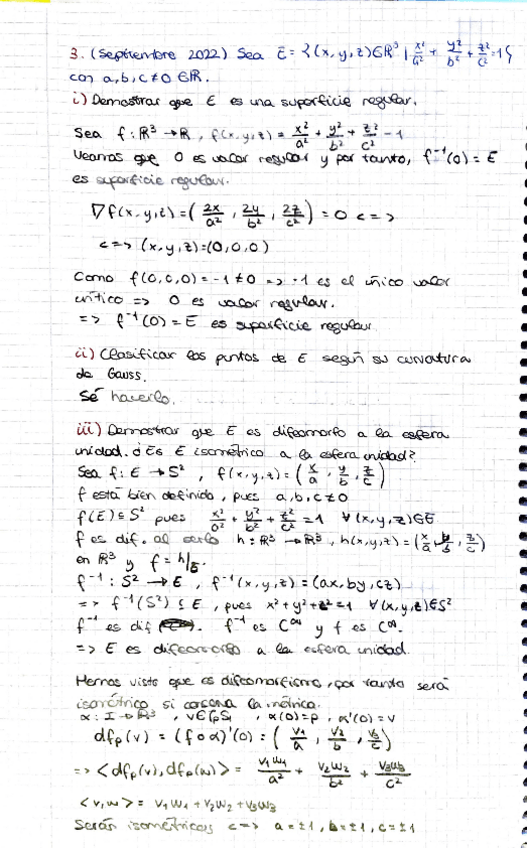 3. (Septiembre 2022) Sea E = {(x,y,z)∈R³ | x²/a² + y²/b² + z²/c² = 1}
con a,b,c ≠ 0 ∈ R.
i) Demostrar que E es una superficie regular.
Sea f: R³ → R, f(x,y,z) = x²/a² + y²/b² + z²/c² - 1
Veamos que 0 es valor regular y por tanto, f⁻¹(0) = E
es superficie regular.
∇f(x,y,z) = (2x/a², 2y/b², 2z/c²) = 0 <=>
<=> (x,y,z) = (0,0,0)
Como f(0,0,0) = -1 ≠ 0 => -1 es el único valor
crítico => 0 es valor regular.
=> f⁻¹(0) = E es superficie regular.
ii) Clasificar los puntos de E según su curvatura
de Gauss.
Sé hacerlo.
iii) Demostrar que E es difeomorfo a la esfera
unidad. ¿Es E isométrico a la esfera unidad?
Sea f: E → S², f(x,y,z) = (x/a, y/b, z/c)
f está bien definida, pues a,b,c ≠ 0
f(E) ⊆ S² pues x²/a² + y²/b² + z²/c² = 1 ∀(x,y,z)∈E
f es dif. al serlo h: R³ → R³, h(x,y,z) = (x/a, y/b, z/c)
en R³ y f = h|E.
f⁻¹: S² → E, f⁻¹(x,y,z) = (ax, by, cz)
=> f⁻¹(S²) ⊆ E, pues x²+y²+z²=1 ∀(x,y,z)∈S²
f⁻¹ es dif. f⁻¹ es C∞ y f es C∞.
=> E es difeomorfo a la esfera unidad.
Hemos visto que es difeomorfismo, por tanto será
isométrico si conserva la métrica.
α: I → R³, v∈TpS, α(0)=p, α'(0)=v
dfp(v) = (f∘α)'(0) = (v₁/a, v₂/b, v₃/c)
=> <dfp(v), dfp(w)> = v₁w₁/a² + v₂w₂/b² + v₃w₃/c²
<v,w> = v₁w₁ + v₂w₂ + v₃w₃
Serán isométricos <=> a=±1, b=±1, c=±1